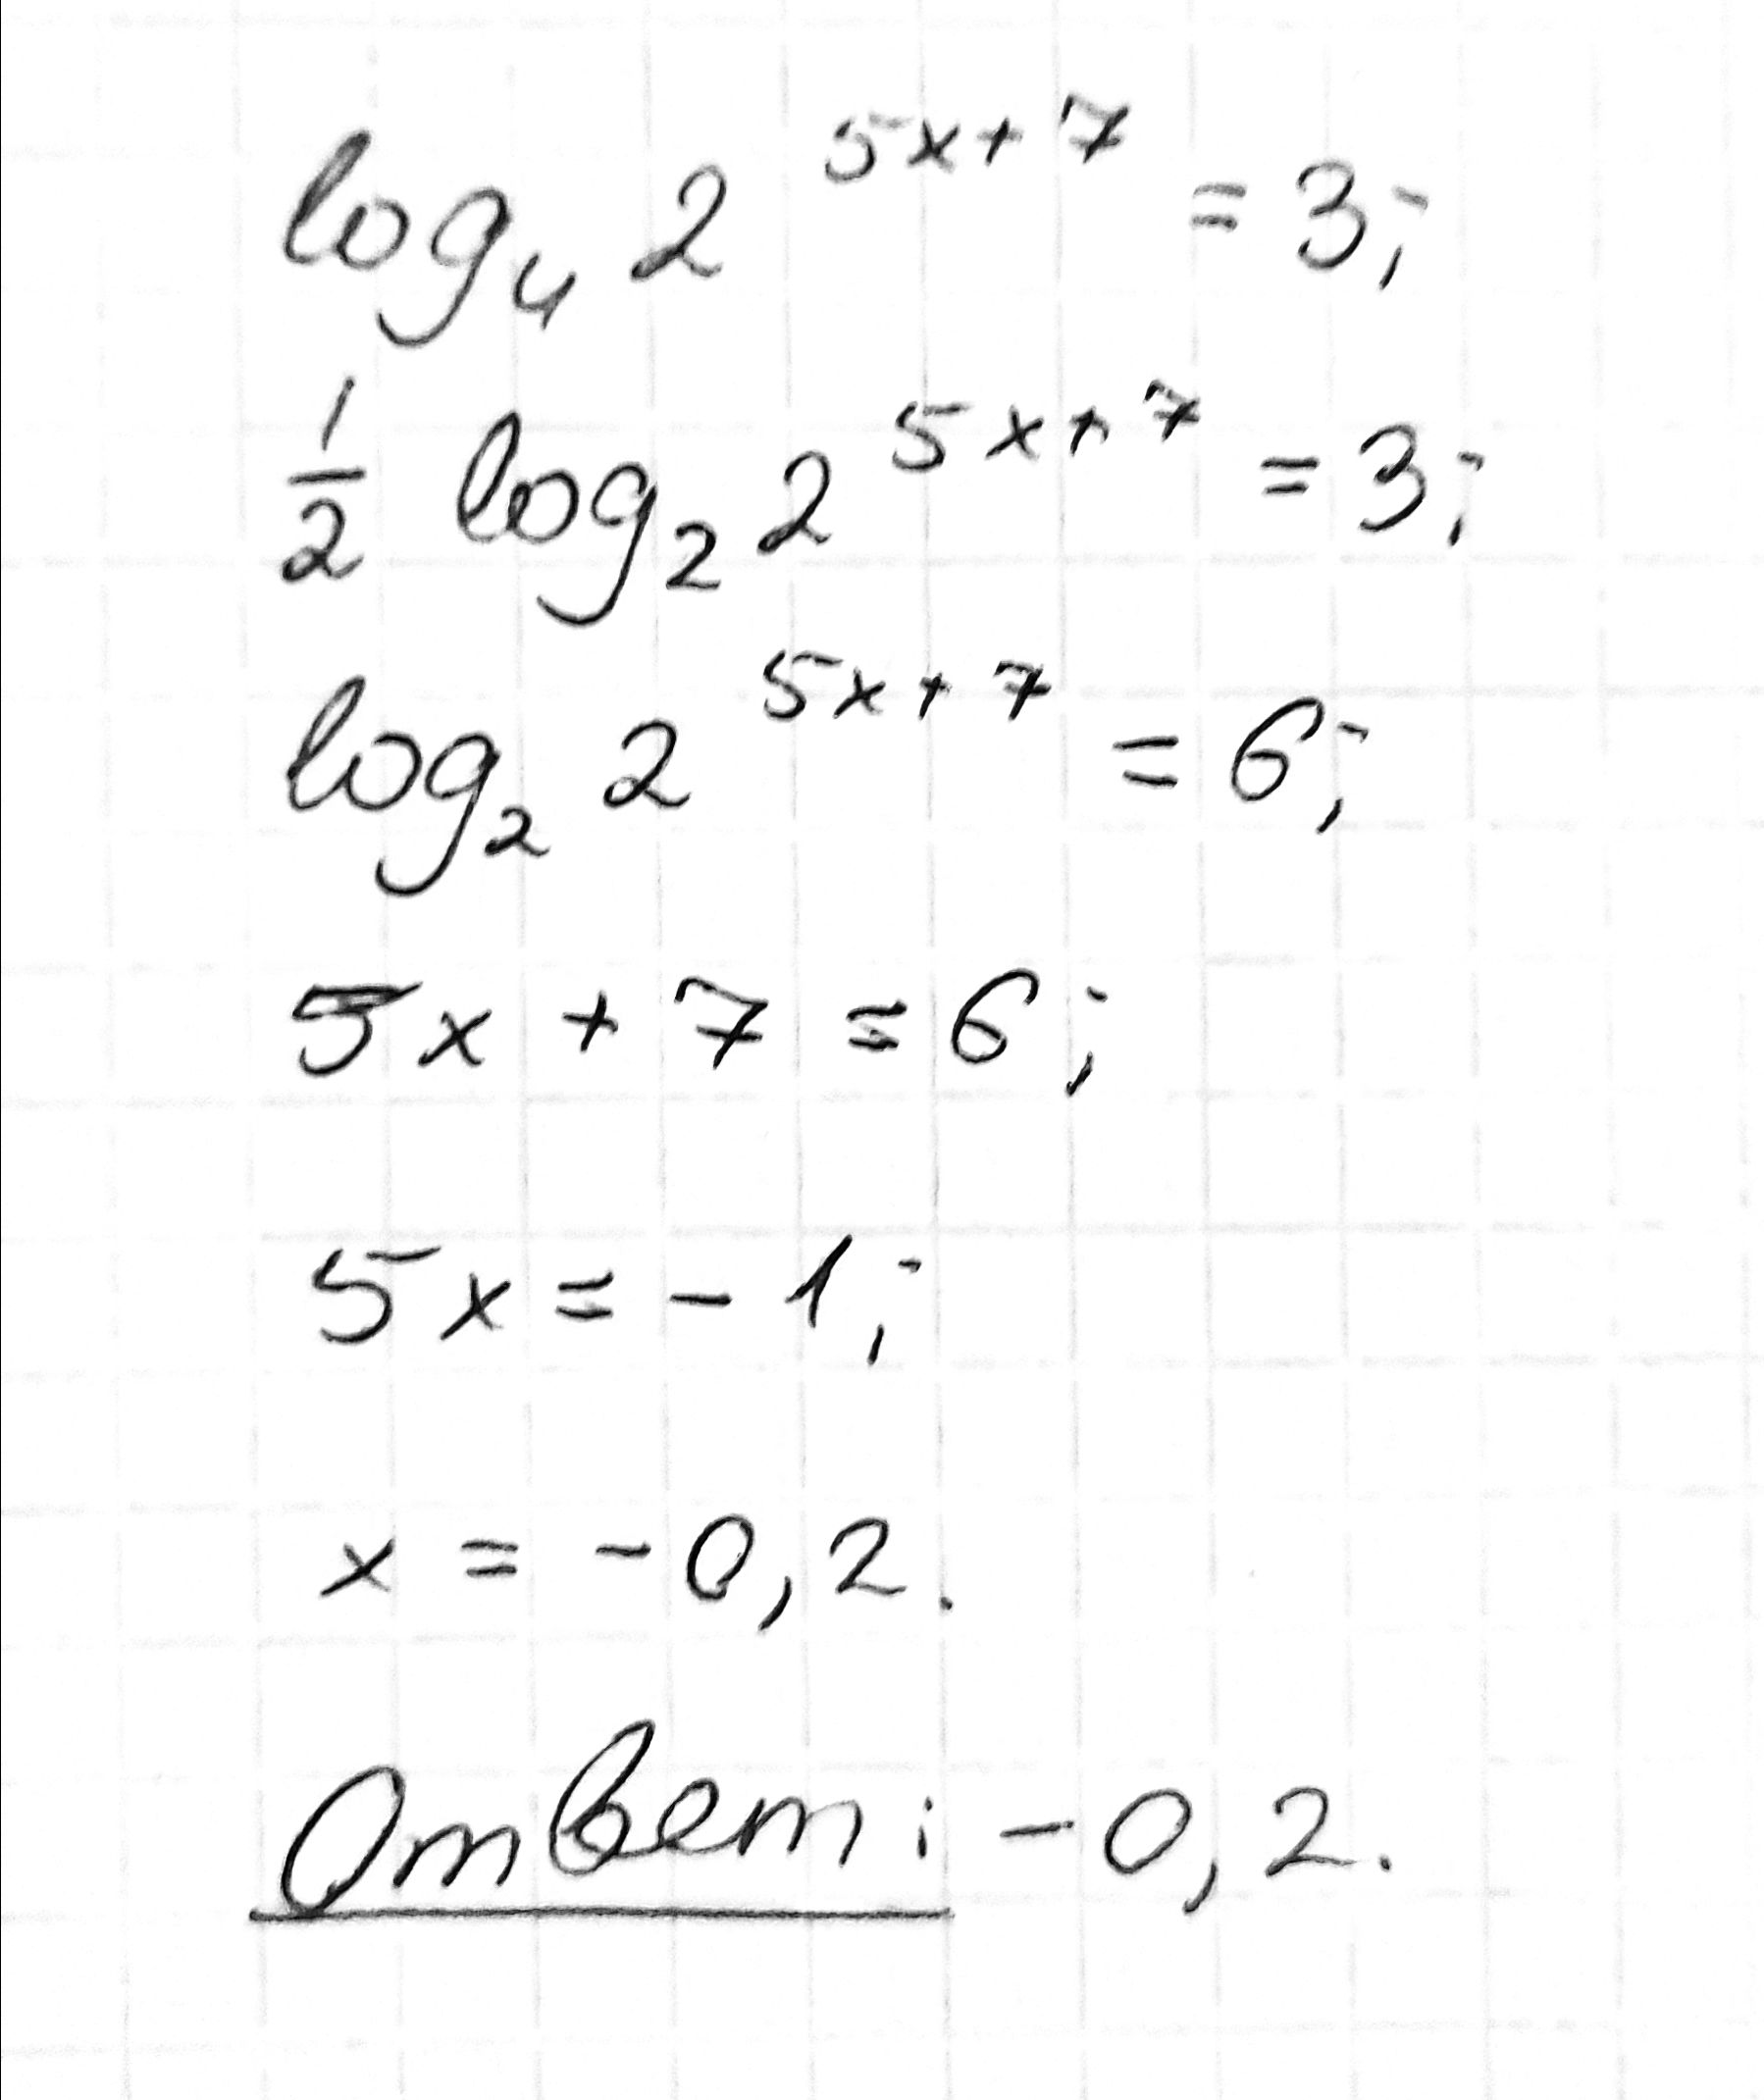 log₄ 2^(5x+7) = 3;
1/2 log₂ 2^(5x+7) = 3;
log₂ 2^(5x+7) = 6;
5x + 7 = 6;
5x = - 1;
x = - 0,2.
Ответ: - 0,2.